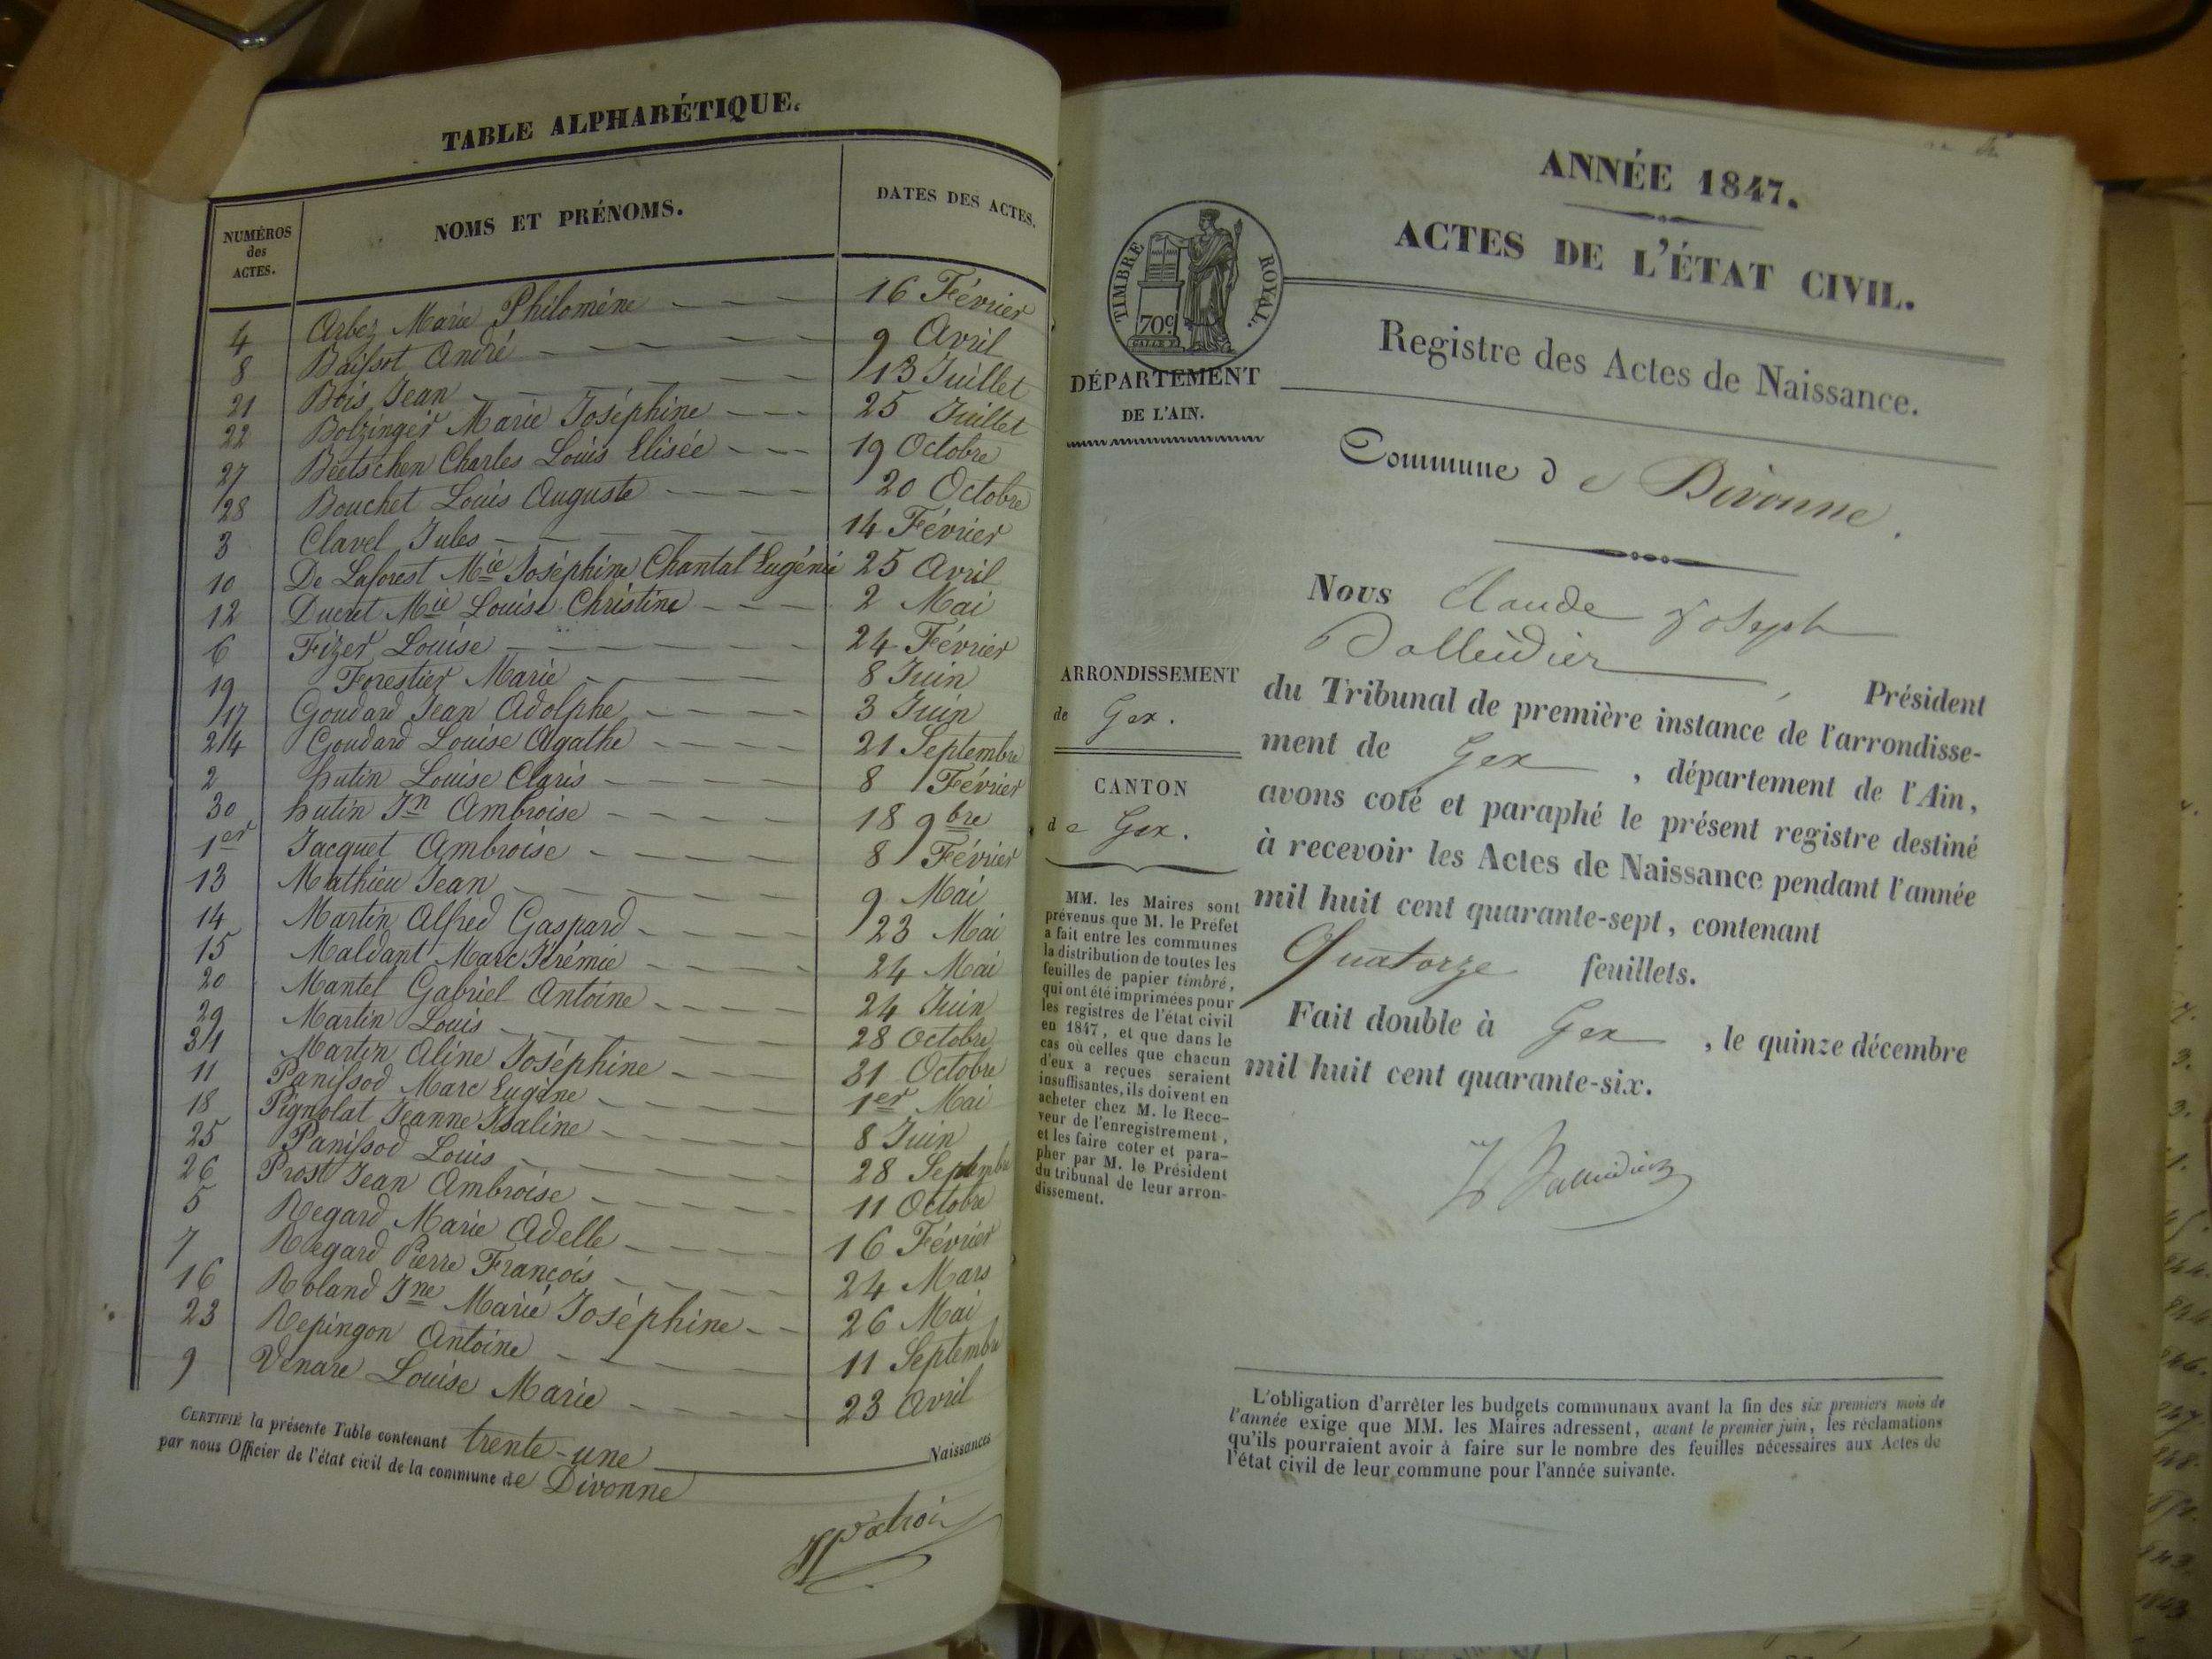 TABLE ALPHABÉTIQUE.
NUMÉROS des ACTES. NOMS ET PRÉNOMS. DATES DES ACTES.
4 Arbez Marie Philomène 16 Février
8 Baissot André 9 Avril
21 Bois Jean 13 Juillet
22 Bolzinger Marie Joséphine 25 Juillet
27 Béetschen Charles Louis Elisée 19 Octobre
28 Bouchet Louis Auguste 20 Octobre
3 Clavel Jules 14 Février
10 De Laforest Mie Joséphine Chantal Eugénie 25 Avril
12 Ducret Mie Louise Christine 2 Mai
6 Fizer Louise 24 Février
19 Forestier Marie 8 Juin
17 Goudard Jean Adolphe 3 Juin
24 Goudard Louise Agathe 21 Septembre
2 hutin Louise Claris 8 Février
30 hutin Jn Ambroise 18 9bre
1er Jacquet Ambroise 8 Février
13 Mathieu Jean 9 Mai
14 Martin Alfred Gaspard 23 Mai
15 Maldant Marc Jérémie 24 Mai
20 Mantel Gabriel Antoine 24 Juin
29 Martin Louis 28 Octobre
31 Martin Aline Joséphine 31 Octobre
11 Panissod Marc Eugène 1er Mai
18 Pignolat Jeanne Isaline 8 Juin
25 Panissod Louis 28 Septembre
26 Prost Jean Ambroise 11 Octobre
5 Regard Marie Adelle 16 Février
7 Regard Pierre François 24 Mars
16 Roland Jne Marie Joséphine 26 Mai
23 Repingon Antoine 11 Septembre
9 Vénare Louise Marie 23 Avril
CERTIFIÉ la présente Table contenant trente-une Naissances
par nous Officier de l'état civil de la commune de Divonne
ANNÉE 1847.
ACTES DE L'ÉTAT CIVIL.
TIMBRE ROYAL.
70c
DÉPARTEMENT
DE L'AIN.
Registre des Actes de Naissance.
Commune de Divonne.
Nous Claude Joseph
Balleidier, Président
du Tribunal de première instance de l'arrondisse-
ment de Gex, département de l'Ain,
avons coté et paraphé le présent registre destiné
à recevoir les Actes de Naissance pendant l'année
mil huit cent quarante-sept, contenant
Quatorze feuillets.
Fait double à Gex, le quinze décembre
mil huit cent quarante-six.
ARRONDISSEMENT
de Gex.
CANTON
de Gex.
MM. les Maires sont
prévenus que M. le Préfet
a fait entre les communes
la distribution de toutes les
feuilles de papier timbré,
qui ont été imprimées pour
les registres de l'état civil
en 1847, et que dans le
cas où celles que chacun
d'eux a reçues seraient
insuffisantes, ils doivent en
acheter chez M. le Rece-
veur de l'enregistrement,
et les faire coter et para-
pher par M. le Président
du tribunal de leur arron-
dissement.
L'obligation d'arrêter les budgets communaux avant la fin des six premiers mois de
l'année exige que MM. les Maires adressent, avant le premier juin, les réclamations
qu'ils pourraient avoir à faire sur le nombre des feuilles nécessaires aux Actes de
l'état civil de leur commune pour l'année suivante.